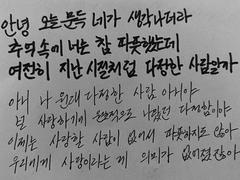 안녕 오늘 문득 네가 생각나더라
추억 속에 너는 참 따뜻했는데
여전히 지난 시절처럼 다정한 사람일까
아니 나 원래 다정한 사람 아니야
널 사랑하기에 었던 다정함이야
이제는 사랑할 사람이 없어서 따뜻하지도 않아
우리에게 사랑이라는 게 의미가 없어졌잖아